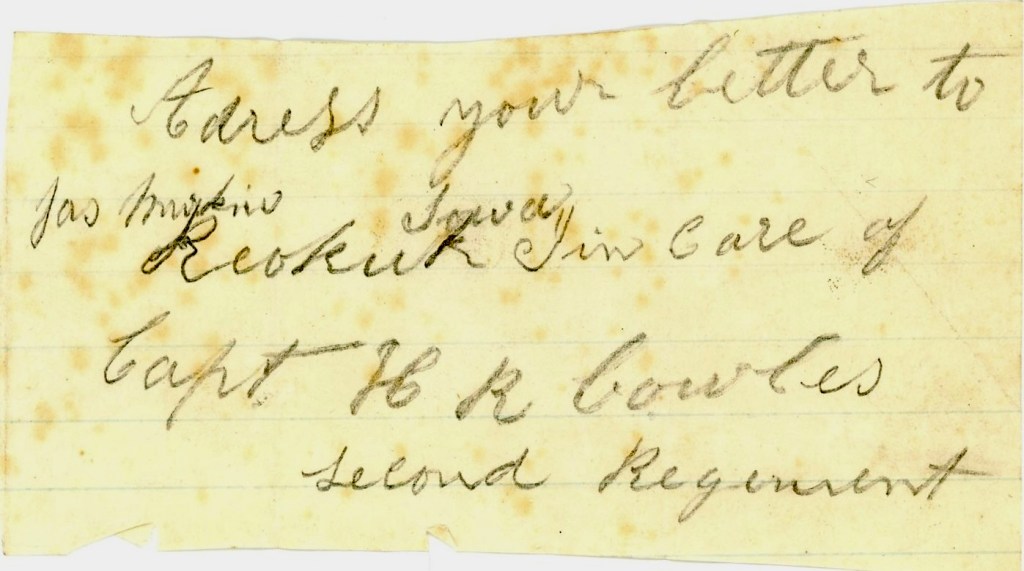 Adress your letter to
Jas Iowa
Keokuk In Care of
Capt H R Cowles
second Regement